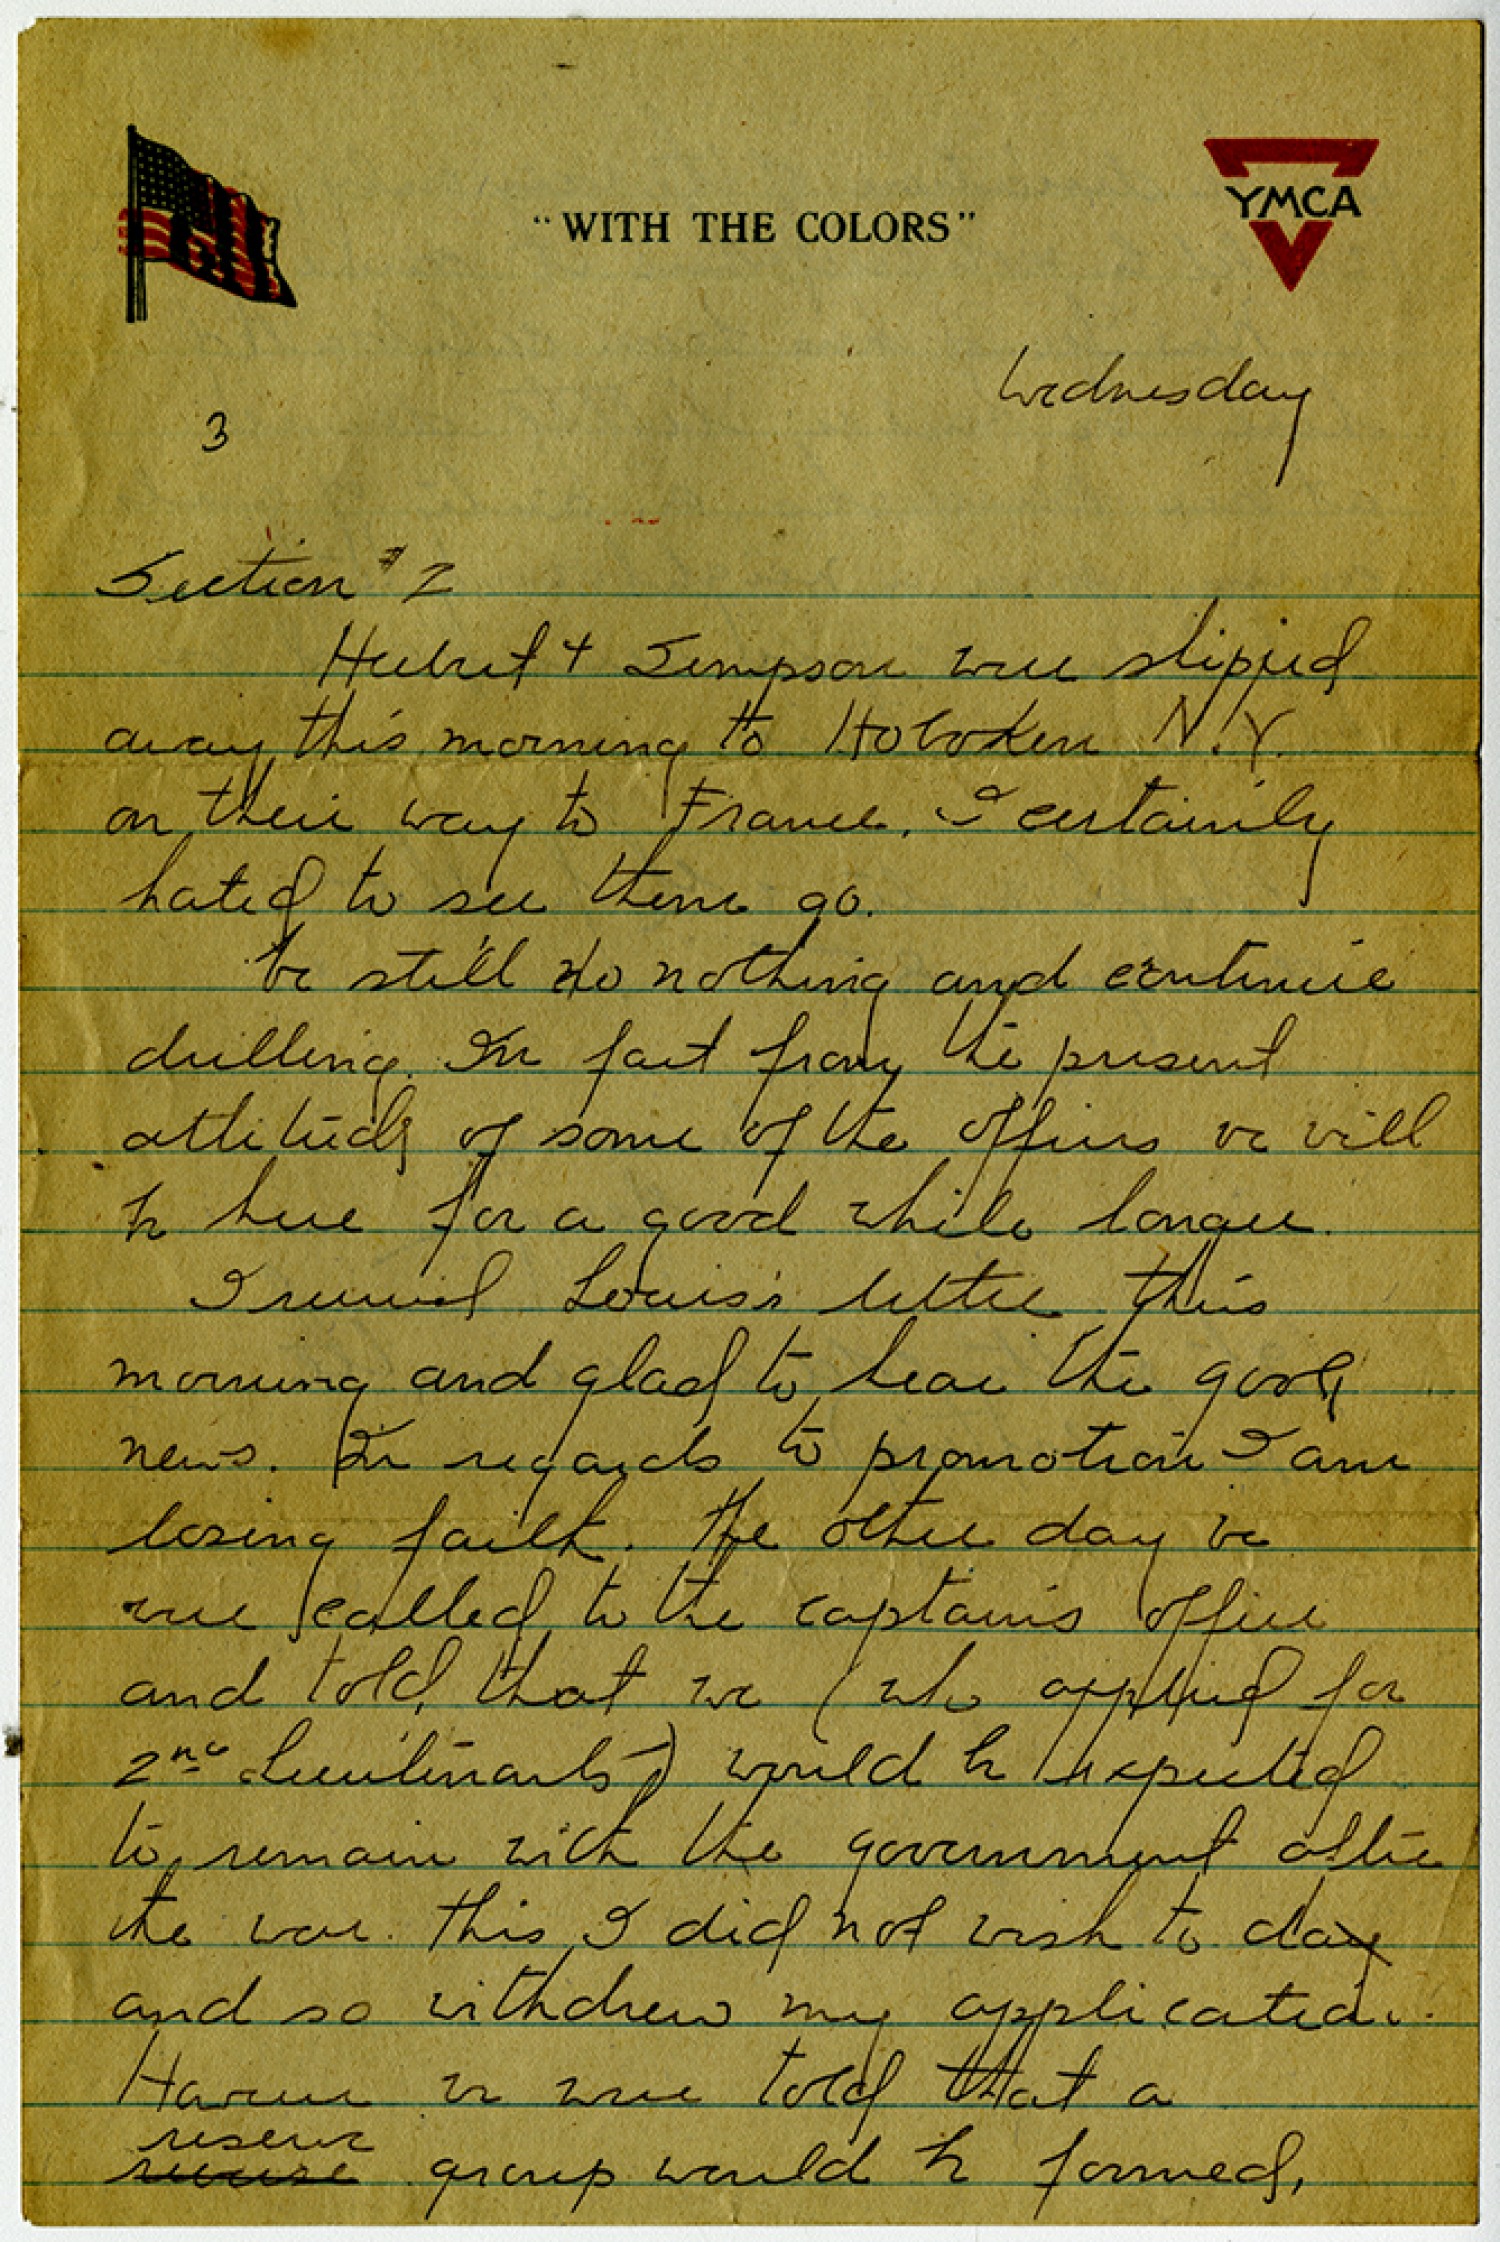 "WITH THE COLORS"
YMCA
Wednesday
3
Section #2
Heubret & Simpson were shipped
away this morning to Hoboken N.Y.
on their way to France. I certainly
hated to see them go.
We still do nothing and continue
drilling. In fact from the present
attitude of some of the officers we will
be here for a good while longer.
I received Louis's letter this
morning and glad to hear the good
news. In regards to promotion I am
losing faith. The other day we
were called to the captain's office
and told that we (who applied for
2nd Lieutenants) would be expected
to remain with the government after
the war. This I did not wish to day
and so withdrew my application.
However we were told that a
reserve
group would be formed,